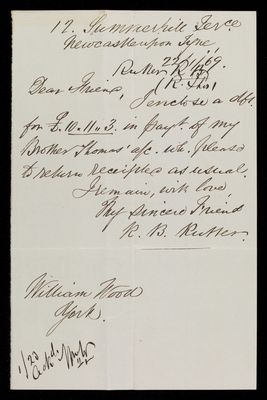 12. Summerhill Terce.
Newcastle upon Tyne,
22/11/69.
Rutter R B
(R. Thos)
Dear Friend,
I enclose a dft.
for £10.11.3. in paymt. of my
Brother Thomas' a/c. wh. please
to return receipted as usual.
I remain, with love,
Thy sincere Friend
R. B. Rutter.
William Wood
York.
1/23
Ackd.